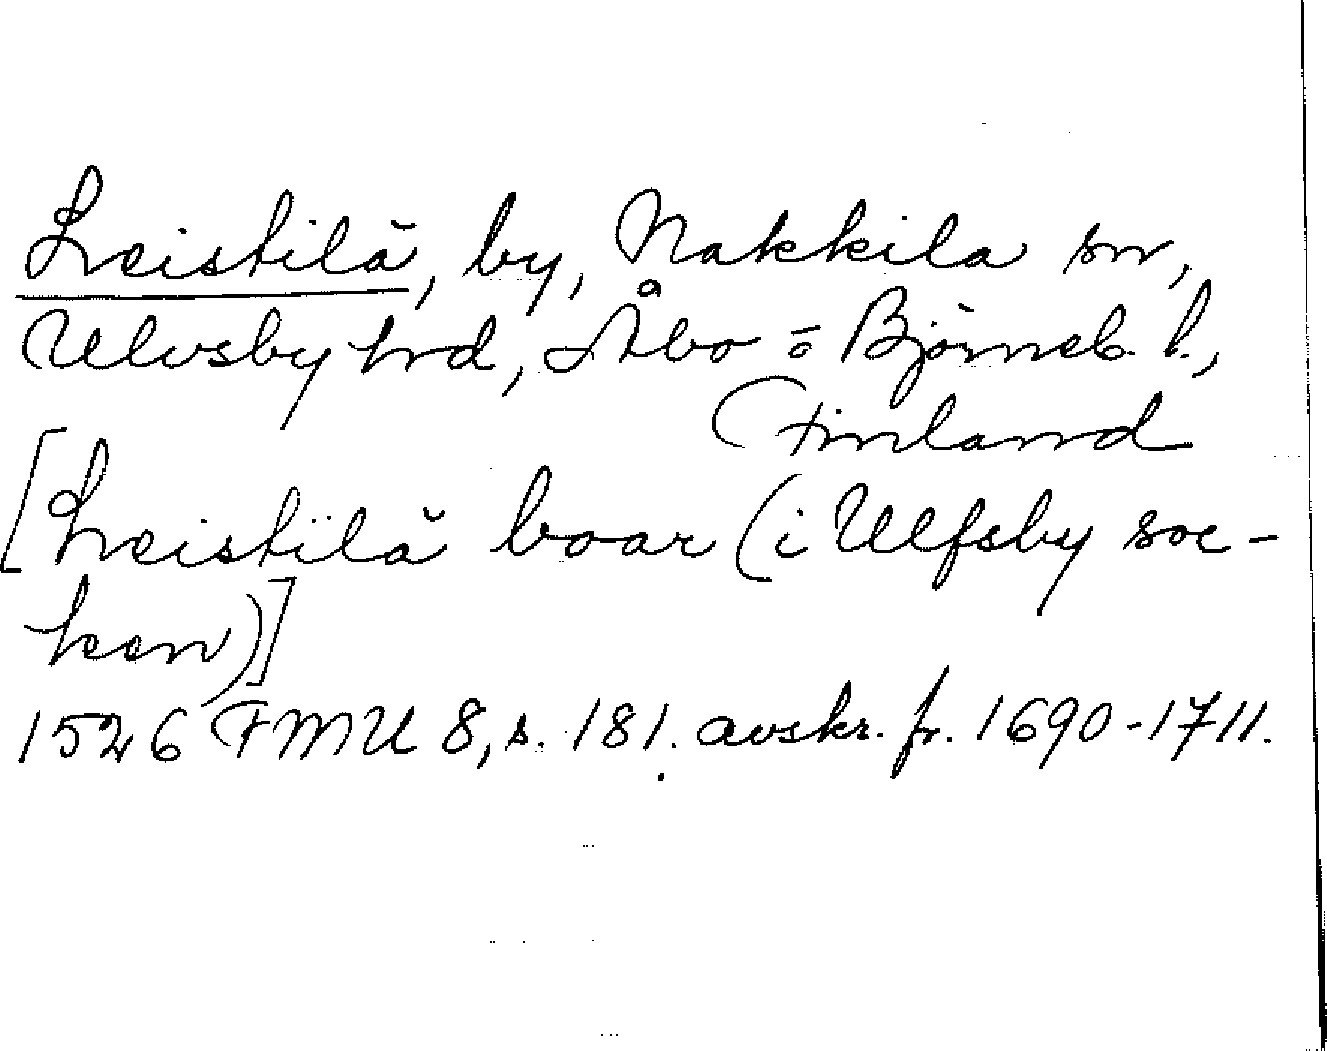 Leistilä, by, Nakkila sn,
Ulvsby hrd, Åbo = Björneb. l.,
Finland
[Leistilä boar (i Ulfsby soc-
ken)]
1526 FMU 8, s. 181. avskr. fr. 1690-1711.